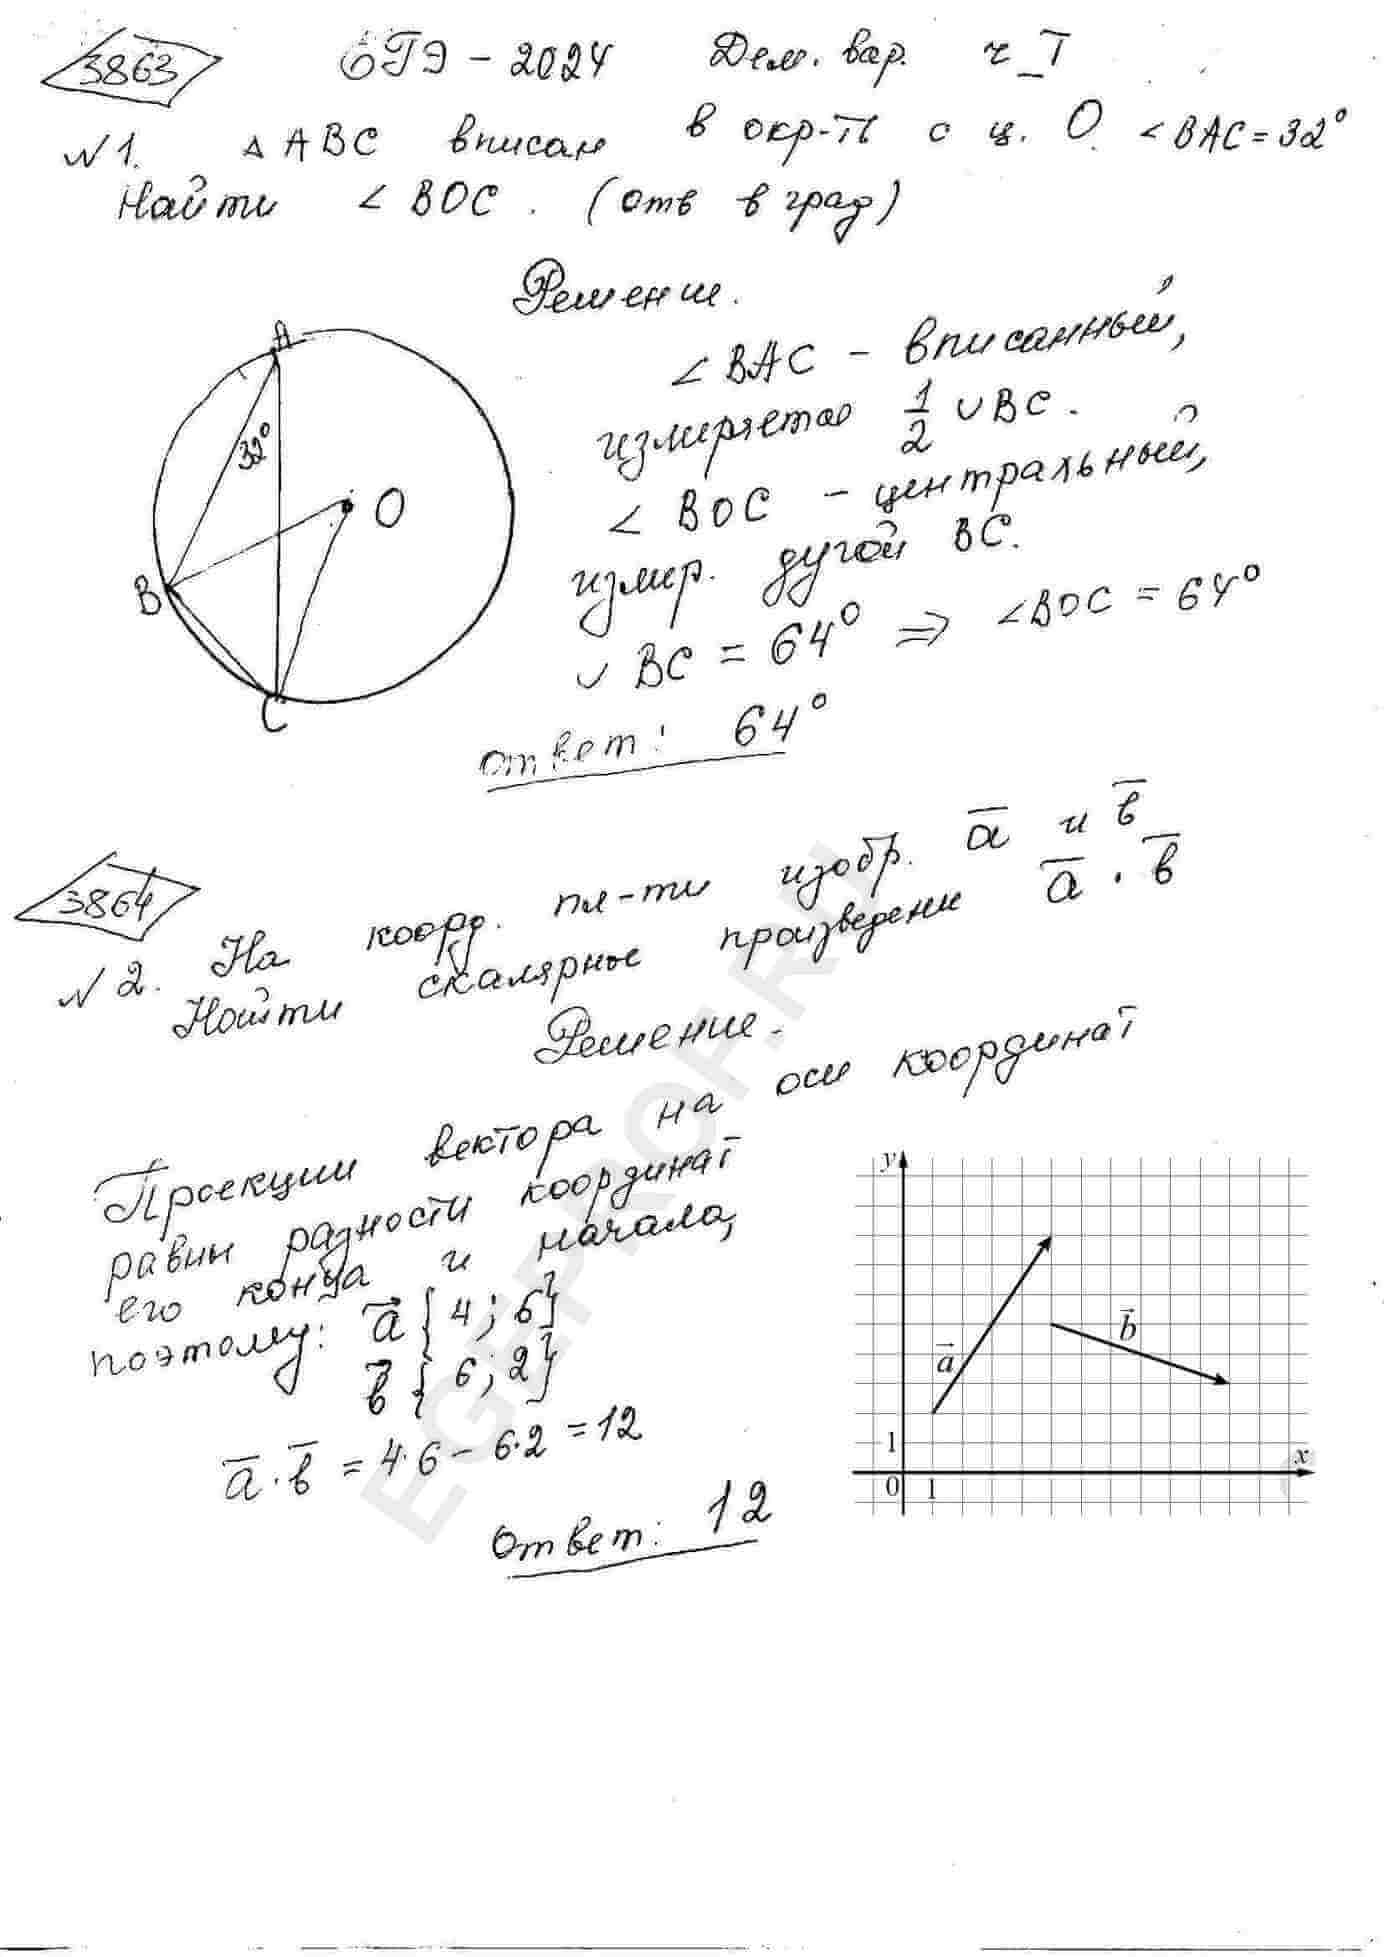 3863 ЕГЭ - 2024 Дем. вар. ч_I
№1. △ABC вписан в окр-ти с ц. O. ∠BAC = 32°
Найти ∠BOC. (отв в град)
Решение.
∠BAC - вписанный,
измеряется 1/2 ∪BC.
∠BOC - центральный,
измер. дугой BC.
∪BC = 64° ⇒ ∠BOC = 64°
Ответ: 64°
A
32°
O
B
C
3864
№2. На коорд. пл-ти изобр. a̅ и b̅
Найти скалярные произведени a̅ · b̅
Решение.
Проекции вектора на оси координат
равны разности координат
его конца и начала,
поэтому: a⃗ {4; 6}
b⃗ {6; 2}
a̅ · b̅ = 4·6 - 6·2 = 12
Ответ: 12
y
b⃗
a⃗
1
x
0 1
EGEPROF.RU